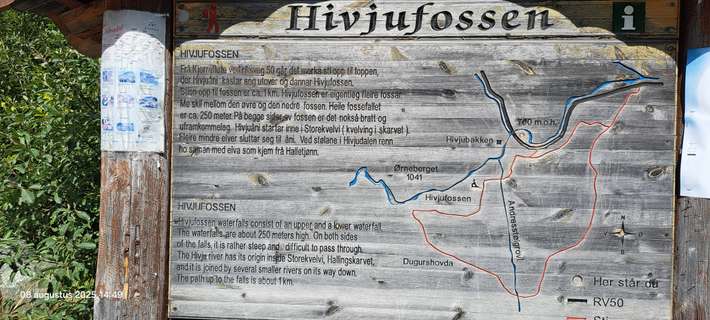 Hivjufossen
i
HIVJUFOSSEN
Frå Kjørnflute ved riksveg 50 går det merka sti opp til toppen,
der Hivjuåni kastar seg utover og dannar Hivjufossen.
Stien opp til fossen er ca. 1 km. Hivjufossen er egentleg fleire fossar.
Me skil mellom den øvre og den nedre fossen. Heile fossefallet
er ca. 250 meter. På begge sider av fossen er det nokså bratt og
uframkommeleg. Hivjuåni startar inne i Storekvelvi ( kvelving i skarvet ).
Fleire mindre elver sluttar seg til åni. Ved stølane i Hivjudalen renn
ho saman med elva som kjem frå Halletjønn.
HIVJUFOSSEN
Hivjufossen waterfalls consist of an upper and a lower waterfall.
The waterfalls are about 250 meters high. On both sides
of the falls, it is rather steep and difficult to pass through.
The Hivje river has its origin inside Storekvelvi, Hallingskarvet,
and it is joined by several smaller rivers on its way down.
The path up to the falls is about 1 km.
760 m.o.h.
Hivjubakken
Ørneberget
1041
Hivjufossen
Dugurshovda
N
Her står du
RV50
Sti
08 augustus 2025 14:49